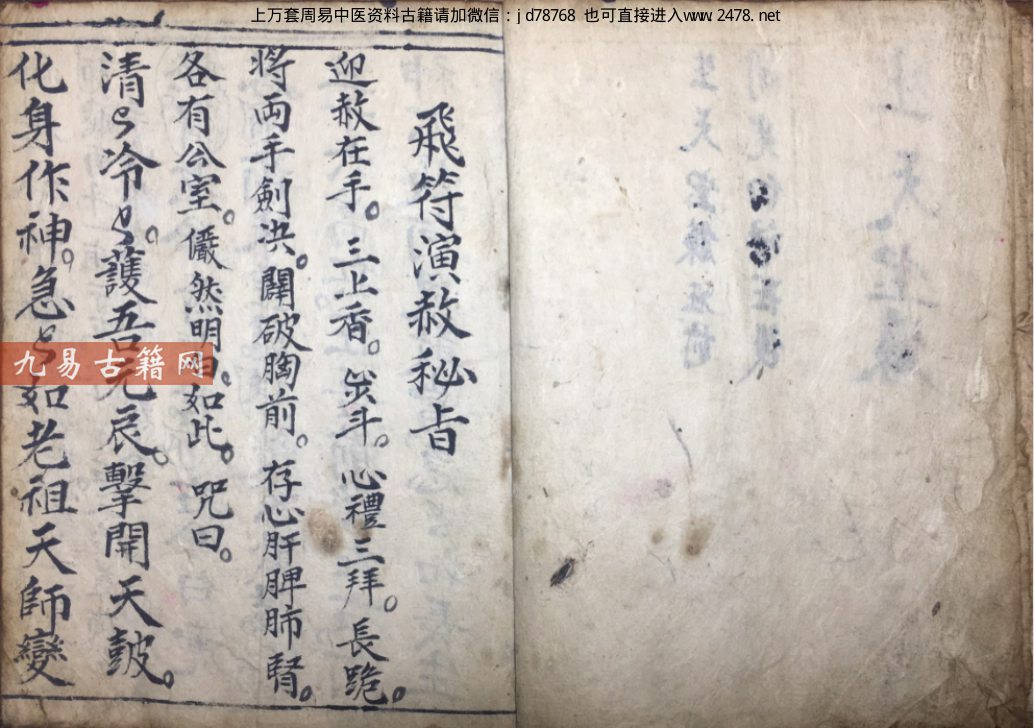 上万套周易中医资料古籍请加微信：jd78768 也可直接进入www.2478.net
飛符演赦秘旨
迎赦在手。三上香。步斗。心禮三拜。長跪。
將両手劍决。開破胸前。存心肝脾肺腎。
各有公室。儼然明白。如此。咒曰。
清々冷々。護吾元辰。擊開天皷。
化身作神。急々如老祖天師變
九易古籍网